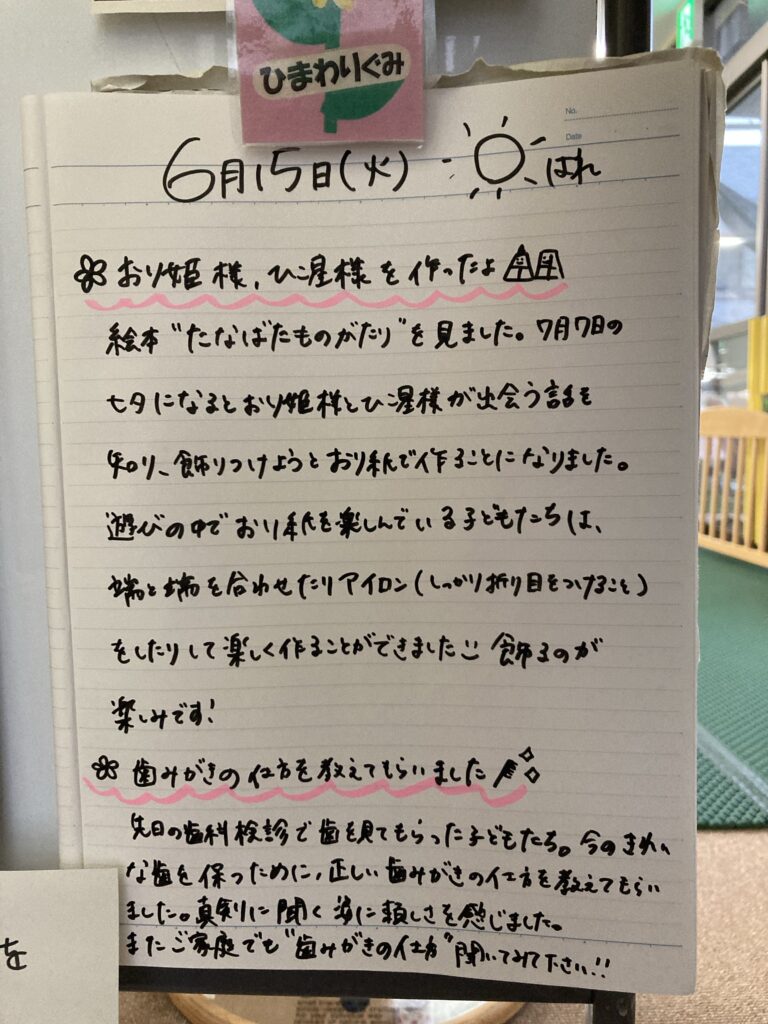 ひまわりぐみ
No.
Date
6月15日(火) はれ
おり姫様、ひこ星様を作ったよ
絵本"たなばたものがたり"を見ました。7月7日の
七夕になるとおり姫様とひこ星様が出会う話を
知り、飾りつけようとおり紙で作ることになりました。
遊びの中でおり紙を楽しんでいる子どもたちは、
端と端を合わせたりアイロン(しっかり折り目をつけること)
をしたりして楽しく作ることができました 飾るのが
楽しみです!
歯みがきの仕方を教えてもらいました
先日の歯科検診で歯を見てもらった子どもたち。今のきれい
な歯を保つために、正しい歯みがきの仕方を教えてもらい
ました。真剣に聞く姿に頼しさを感じました。
またご家庭でも"歯みがきの仕方"聞いてみて下さい!!
を